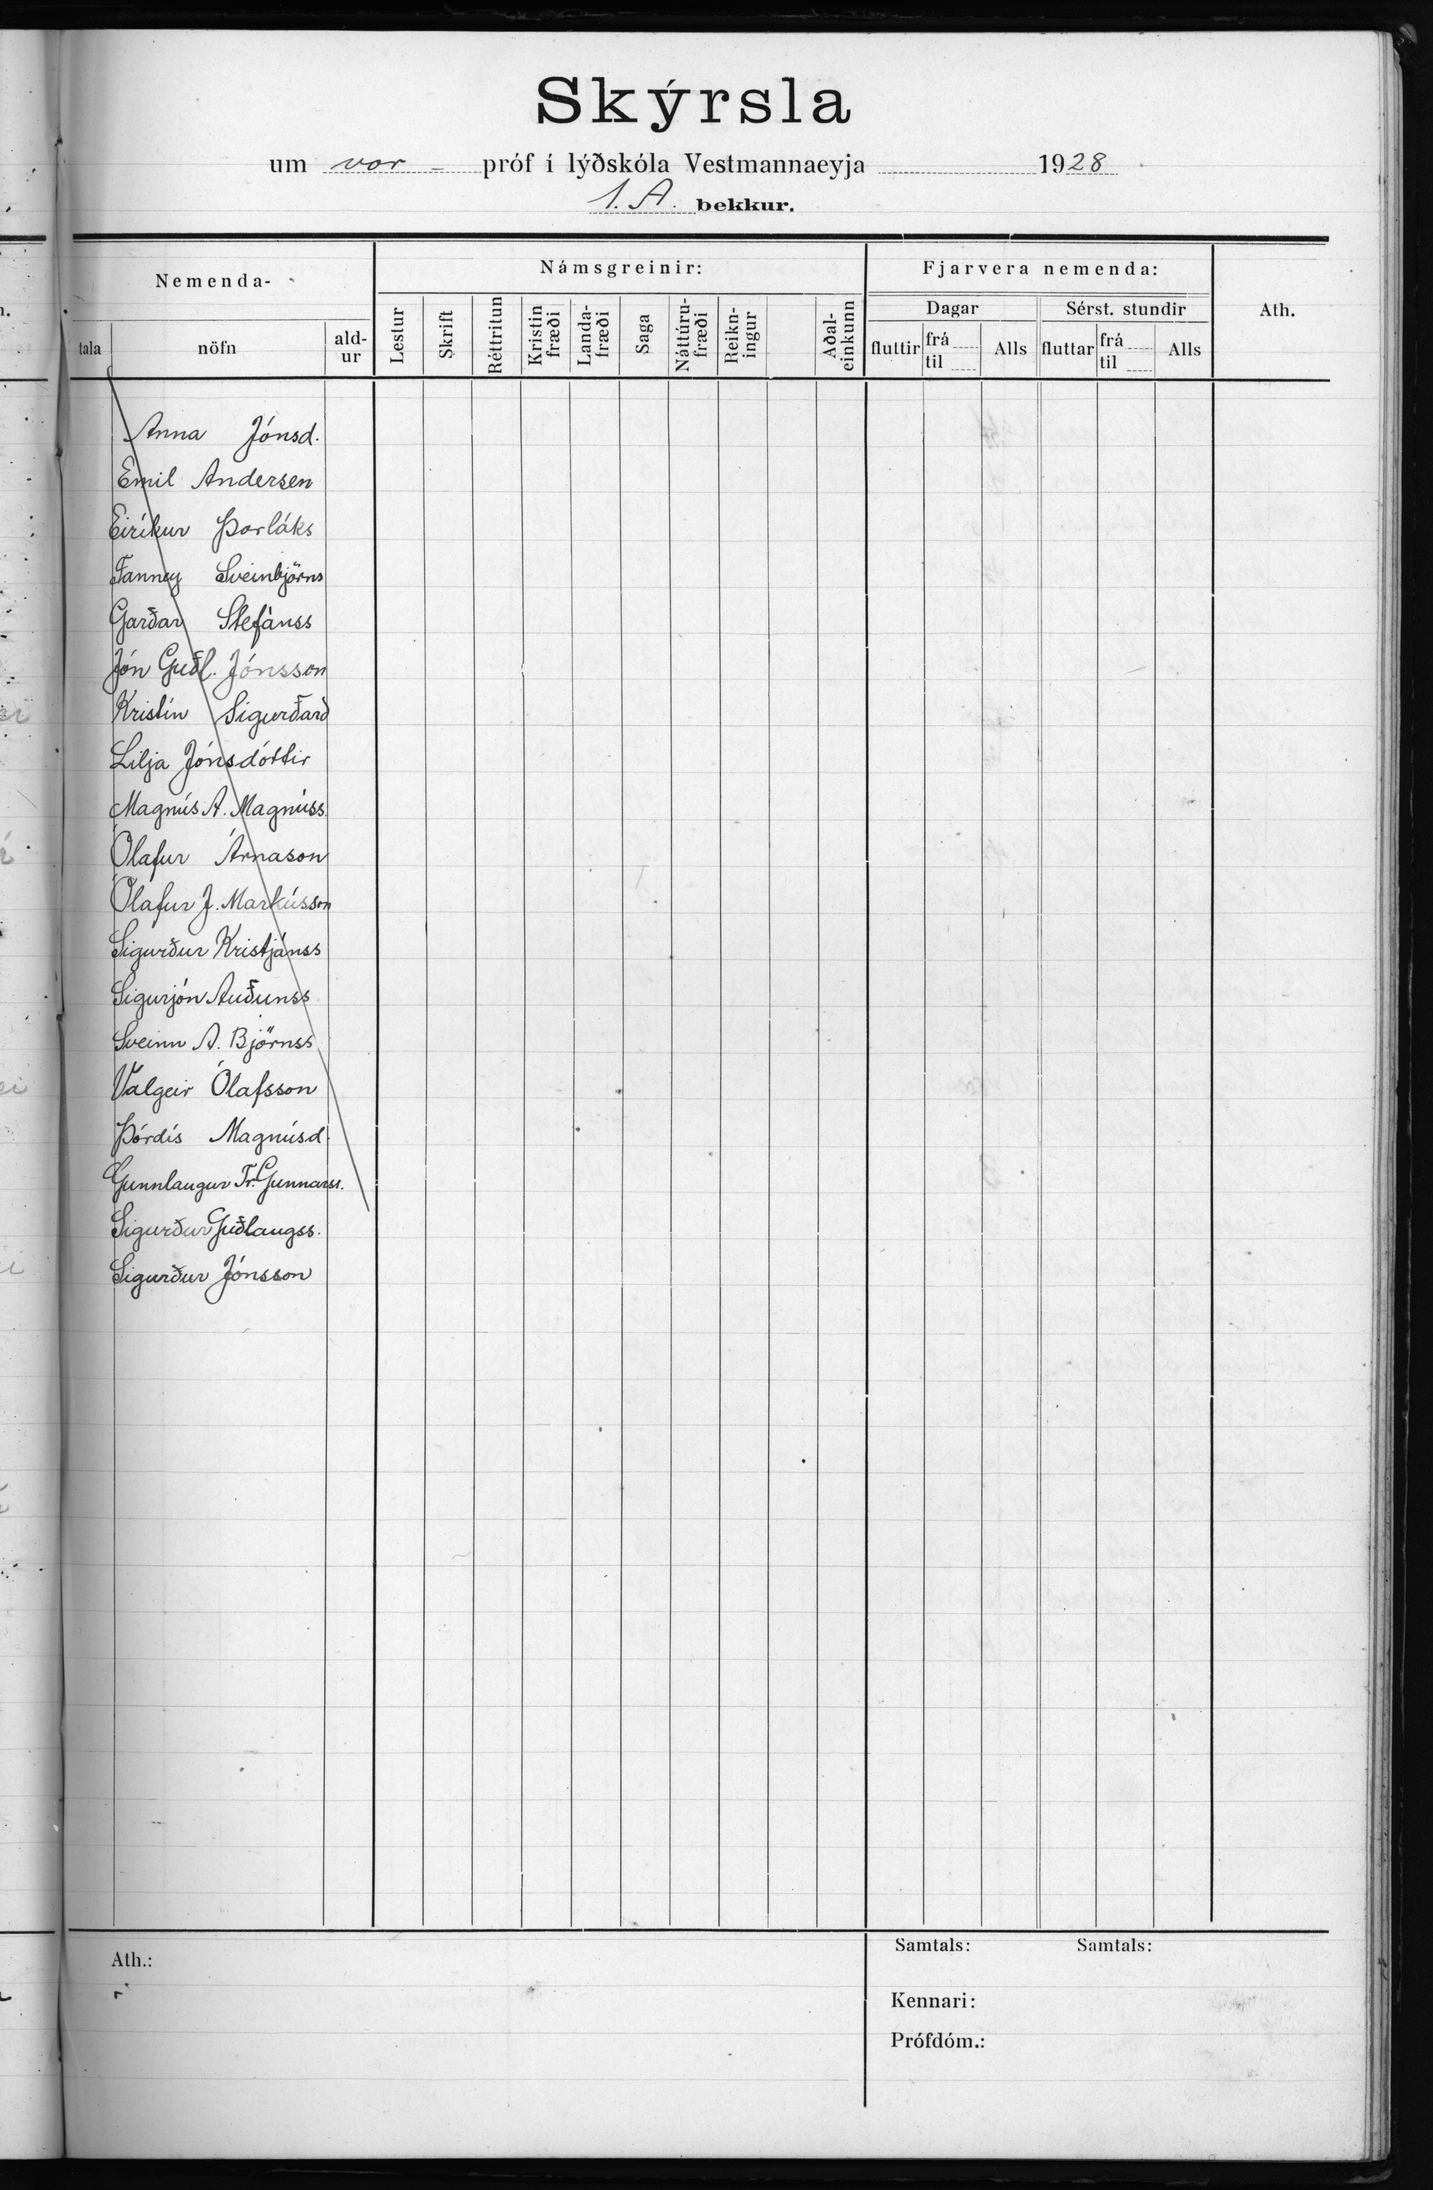 Skýrsla
um vor - próf í lýðskóla Vestmannaeyja 1928
1. A. bekkur.
Nemenda-
Námsgreinir:
Fjarvera nemenda:
Ath.
tala
nöfn
ald-
ur
Lestur
Skrift
Réttritun
Kristin
fræði
Landa-
fræði
Saga
Náttúru-
fræði
Reikn-
ingur
Aðal-
einkunn
Dagar
Sérst. stundir
fluttir
frá
til
Alls
fluttar
frá
til
Alls
Anna Jónsd.
Emil Andersen
Eiríkur Þorláks
Fanney Sveinbjörns
Garðar Stefánss
Jón Guðl. Jónsson
Kristín Sigurðard
Lilja Jónsdóttir
Magnús A. Magnúss
Ólafur Árnason
Ólafur J. Markússon
Sigurður Kristjánss
Sigurjón Auðunss
Sveinn A. Björnss
Valgeir Ólafsson
Þórdís Magnúsd
Gunnlaugur Tr. Gunnarss.
Sigurður Guðlaugss.
Sigurður Jónsson
Ath.:
Samtals: Samtals:
Kennari:
Prófdóm.: